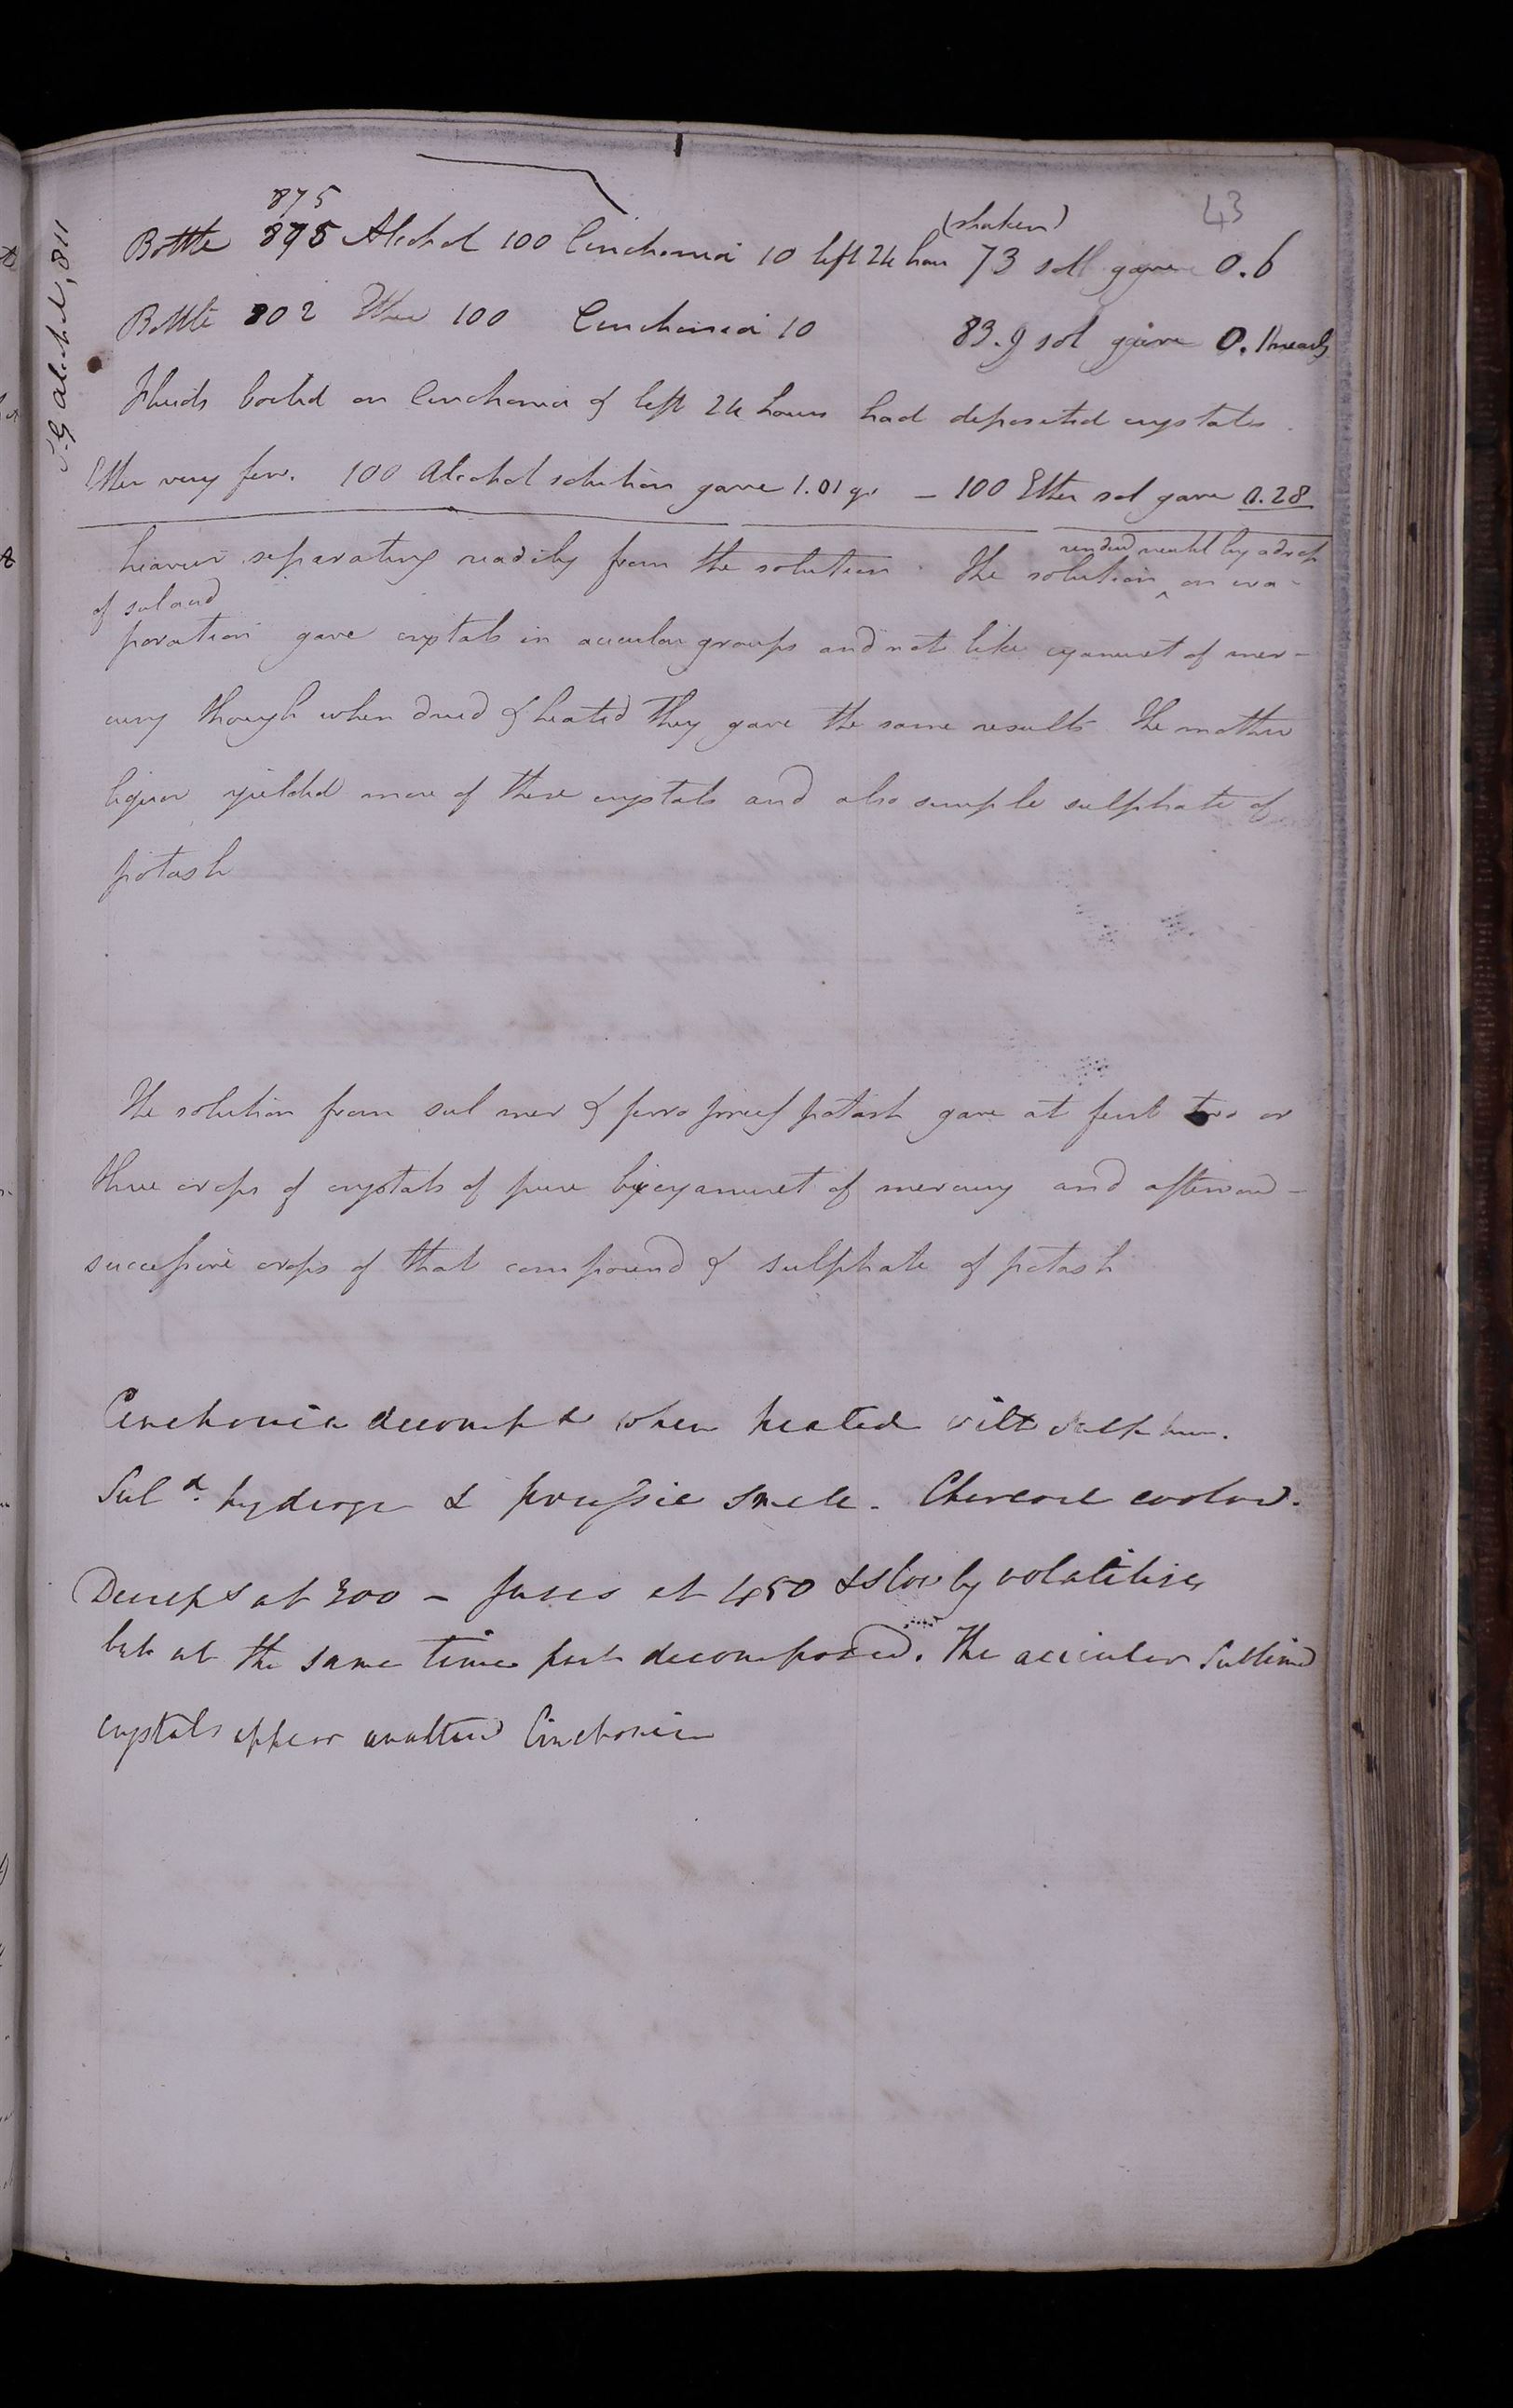 43
875 (shaken)
Bottle 875 Alcohol 100 Cinchonia 10 left 24 hours 73 soll gave 0.6
Bottle 802 Ether 100 Cinchonia 10 83.9 sol gave 0.1 nearly
Fluids boiled on Cinchonia & left 24 hours had deposited crystals.
Ether very few. 100 Alcohol solution gave 1.01 gr — 100 Ether sol gave 0.28
S.G alcohol, 811
heavier separating readily from the solution. The solution ^ on eva-
rendered neutral by a drop
of sul acid
poration gave crystals in acicular groups and not like cyanuret of mer-
cury though when dried & heated they gave the same results. The mother
liquor yielded more of these crystals and also simple sulphate of
potash
The solution from sul mer & ferro pruss potash gave at first two or
three crops of crystals of pure bicyanuret of mercury and afterward-
successive crops of that compound & sulphate of potash
Cinchonia decompd when heated with Sulphur.
Suld. hydrogen & prussic smell. Charcoal evolved.
at 300 - fuses at 450 & slowly volatilises
but at the same time part decomposed. The acicular sublimed
crystals appear unaltered Cinchonia